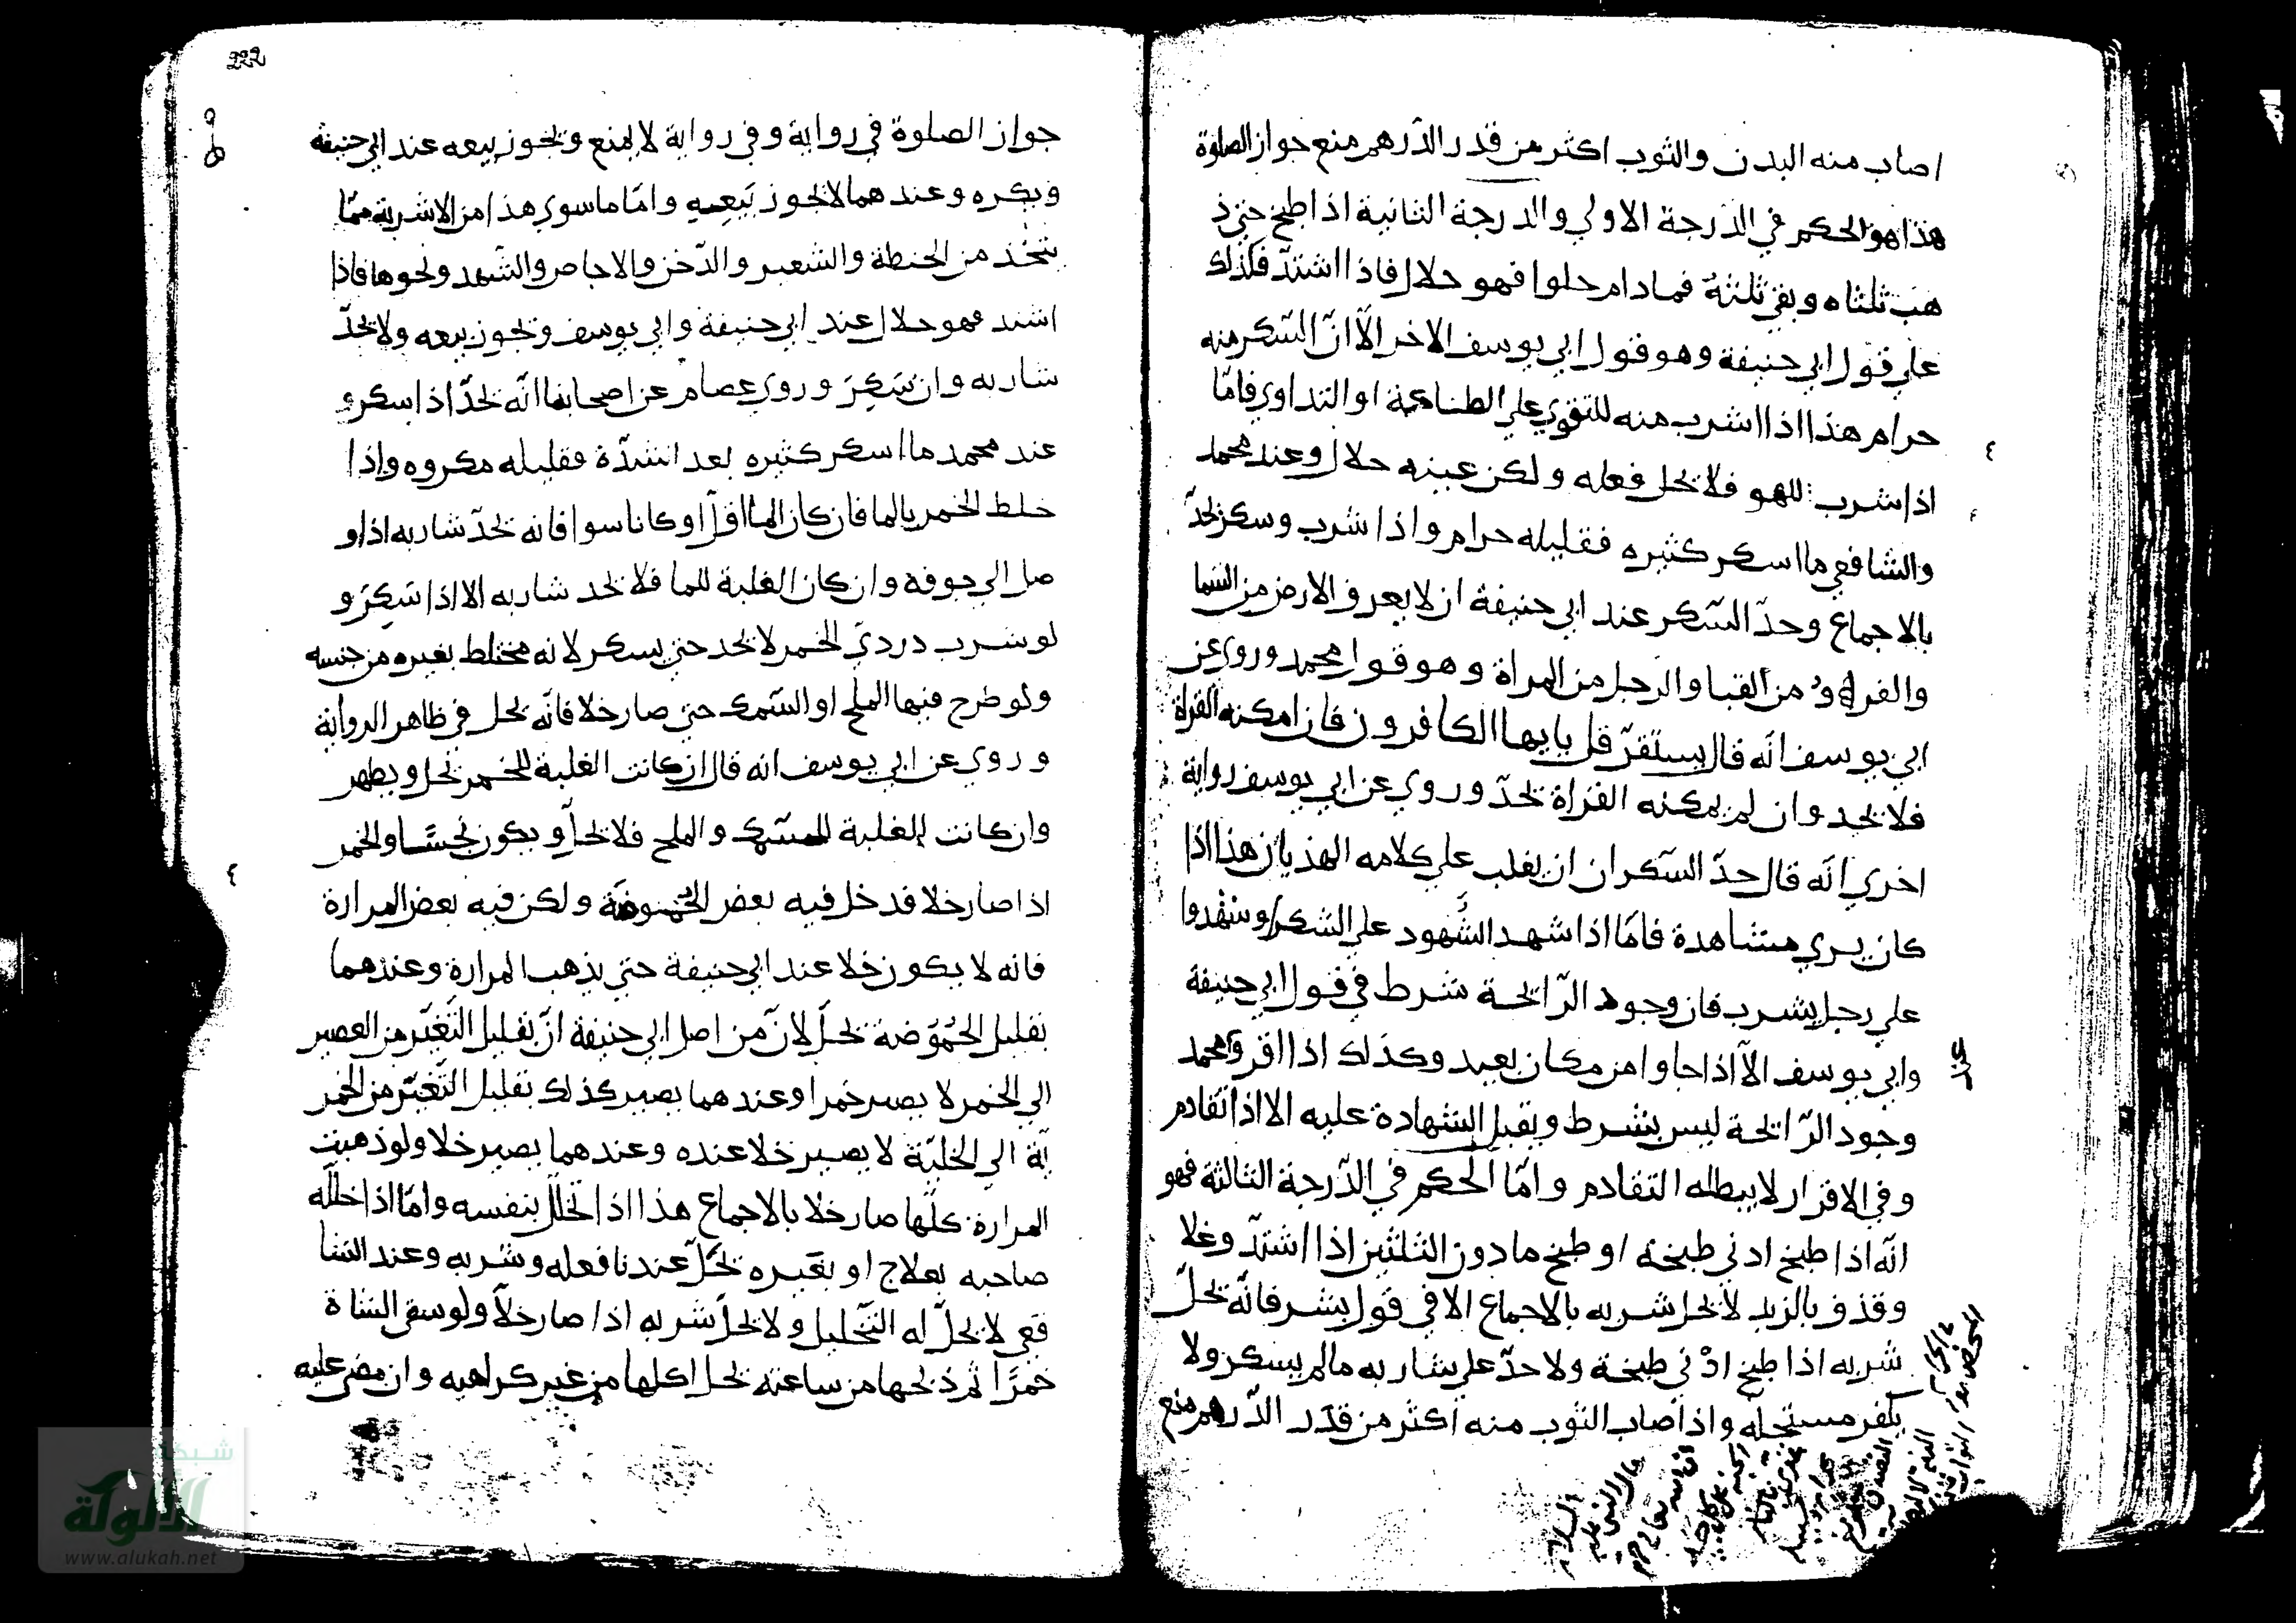 اصاب منه البدن والثوب اكثر من قدر الدّرهم منع جواز الصلوة
هذا هو الحكم في الدّرجة الاولي والدرجة الثانية اذا طبخ حتي ذ
هب ثلثاه وبقي ثلثهٌ فمادام حلوا فهو حلال فاذا اشتدّ فكذلك
علي قول ابي حنيفة وهو قول ابي يوسف الاخر الّا انّ السّكر منه
حرام هذا اذا اشرب منه للتقوي علي الطاعة او التداوي فامّا
اذا شرب للهو فلا يحل فعله ولكن عينه حلال وعند محمد
والشافعي ما اسكر كثيره فقليله حرام واذا شرب وسكر يحدّ
بالاجماع وحدّ السّكر عند ابي حنيفة ان لا يعرف الارض من السّما
والفرو من القبا والرجل من المراة وهو قول محمد وروي عن
ابي يوسف انّه قال يستقرّ قل يايها الكافرون فان امكنه القراة
فلا يحد وان لم يمكنه القراة يحدّ وروي عن ابي يوسف رواية
اخري انّه قال حدّ السّكران ان يغلب علي كلامه الهذيان هذا اذا
كان يري مشاهدة فامّا اذا شهد الشّهود علي السّكر او شهدوا
علي رجل يشرب فان وجود الرّايحة شرط في قول ابي حنيفة
وابي يوسف الّا اذا جاوا من مكان بعيد وكذلك اذا اقر ومحمد
عند
وجود الرّايحة ليس بشرط ويقبل الشهادة عليه الا اذا تقادم
وفي الاقرار لا يبطله التقادم وامّا الحكم في الدّرجة الثالثة فهو
انّه اذا طبخ ادني طبخة او طبخ ما دون الثلثين اذا اشتدّ وغلا
وقذف بالزبد لا يحل شربه بالاجماع الا في قول بشر فانّه يحلّ
شربه اذا طبخ ادني طبخة ولا حدّ علي شاربه مالم يسكر ولا
يكفر مستحلّه واذا اصاب الثوب منه اكثر من قدر الدّرهم منع
222
جواز الصلوة في رواية وفي رواية لا يمنع ويجوز بيعه عند ابي حنيفة
ويكره وعندهما لا يجوز بَيعه وامّا ماسوي هذا من الاشربة ممّا
يتّخذ من الحنطة والشعير والدّخن والاجاص والشّهد ونحوها فاذا
اشتد فهو حلال عند ابي حنيفة وابي يوسف ويجوز بيعه ولا يحدّ
شاربه وان سَكِرَ وروي عصام عن اصحابنا انّه يحدّ اذا سكر و
عند محمد ما اسكر كثيره بعد اشدّة فقليله مكروه واذا
خلط الخمر بالما فان كان الما اقلّ او كانا سوا فانه يحدّ شاربه اذا و
صل الي جوفه وان كان الغلبة للما فلا يحد شاربه الا اذا سَكِرَ و
لو شرب درديّ الخمر لا يحد حتي يسكر لانه مختلط بغيره من جنسه
ولو طرح فيها الملح او السّمك حتي صار خلا فانّه يحل في ظاهر الرواية
وروي عن ابي يوسف انه قال ان كانت الغلبة للخمر يحل ويطهر
وان كانت الغلبة للسّمك والملح فلا يحل ويكون نجسًا والخمر
اذا صار خلا قد خل فيه بعض الحموضة ولكن فيه بعض المرارة
فانه لا يكون خلا عند ابي حنيفة حتي يذهب المرارة وعندهما
بقليل الحُمُوضة يحلّ لانّ من اصل ابي حنيفة انّ بقليل التّغيّر من العصير
الي الخمر لا يصير خمرا وعندهما يصير كذلك بقليل التّغيّر من الخمر
يّة الي الخليّة لا يصير خلا عنده وعندهما يصير خلا ولو ذهبت
المرارة كلّها صار خلا بالاجماع هذا اذا تخلّل بنفسه وامّا اذا خللّه
صاحبه بعلاج او بغيره يحلّ عندنا فعله وشربه وعند الشا
فعي لا يحلّ له التّخليل ولا يحلّ شربه اذا صار خلاّ ولو سقي الشاة
خمرًا ثم ذبحها من ساعته يحل اكلها من غير كراهيه وان مضي عليه
شبكة
الألوكة
www.alukah.net